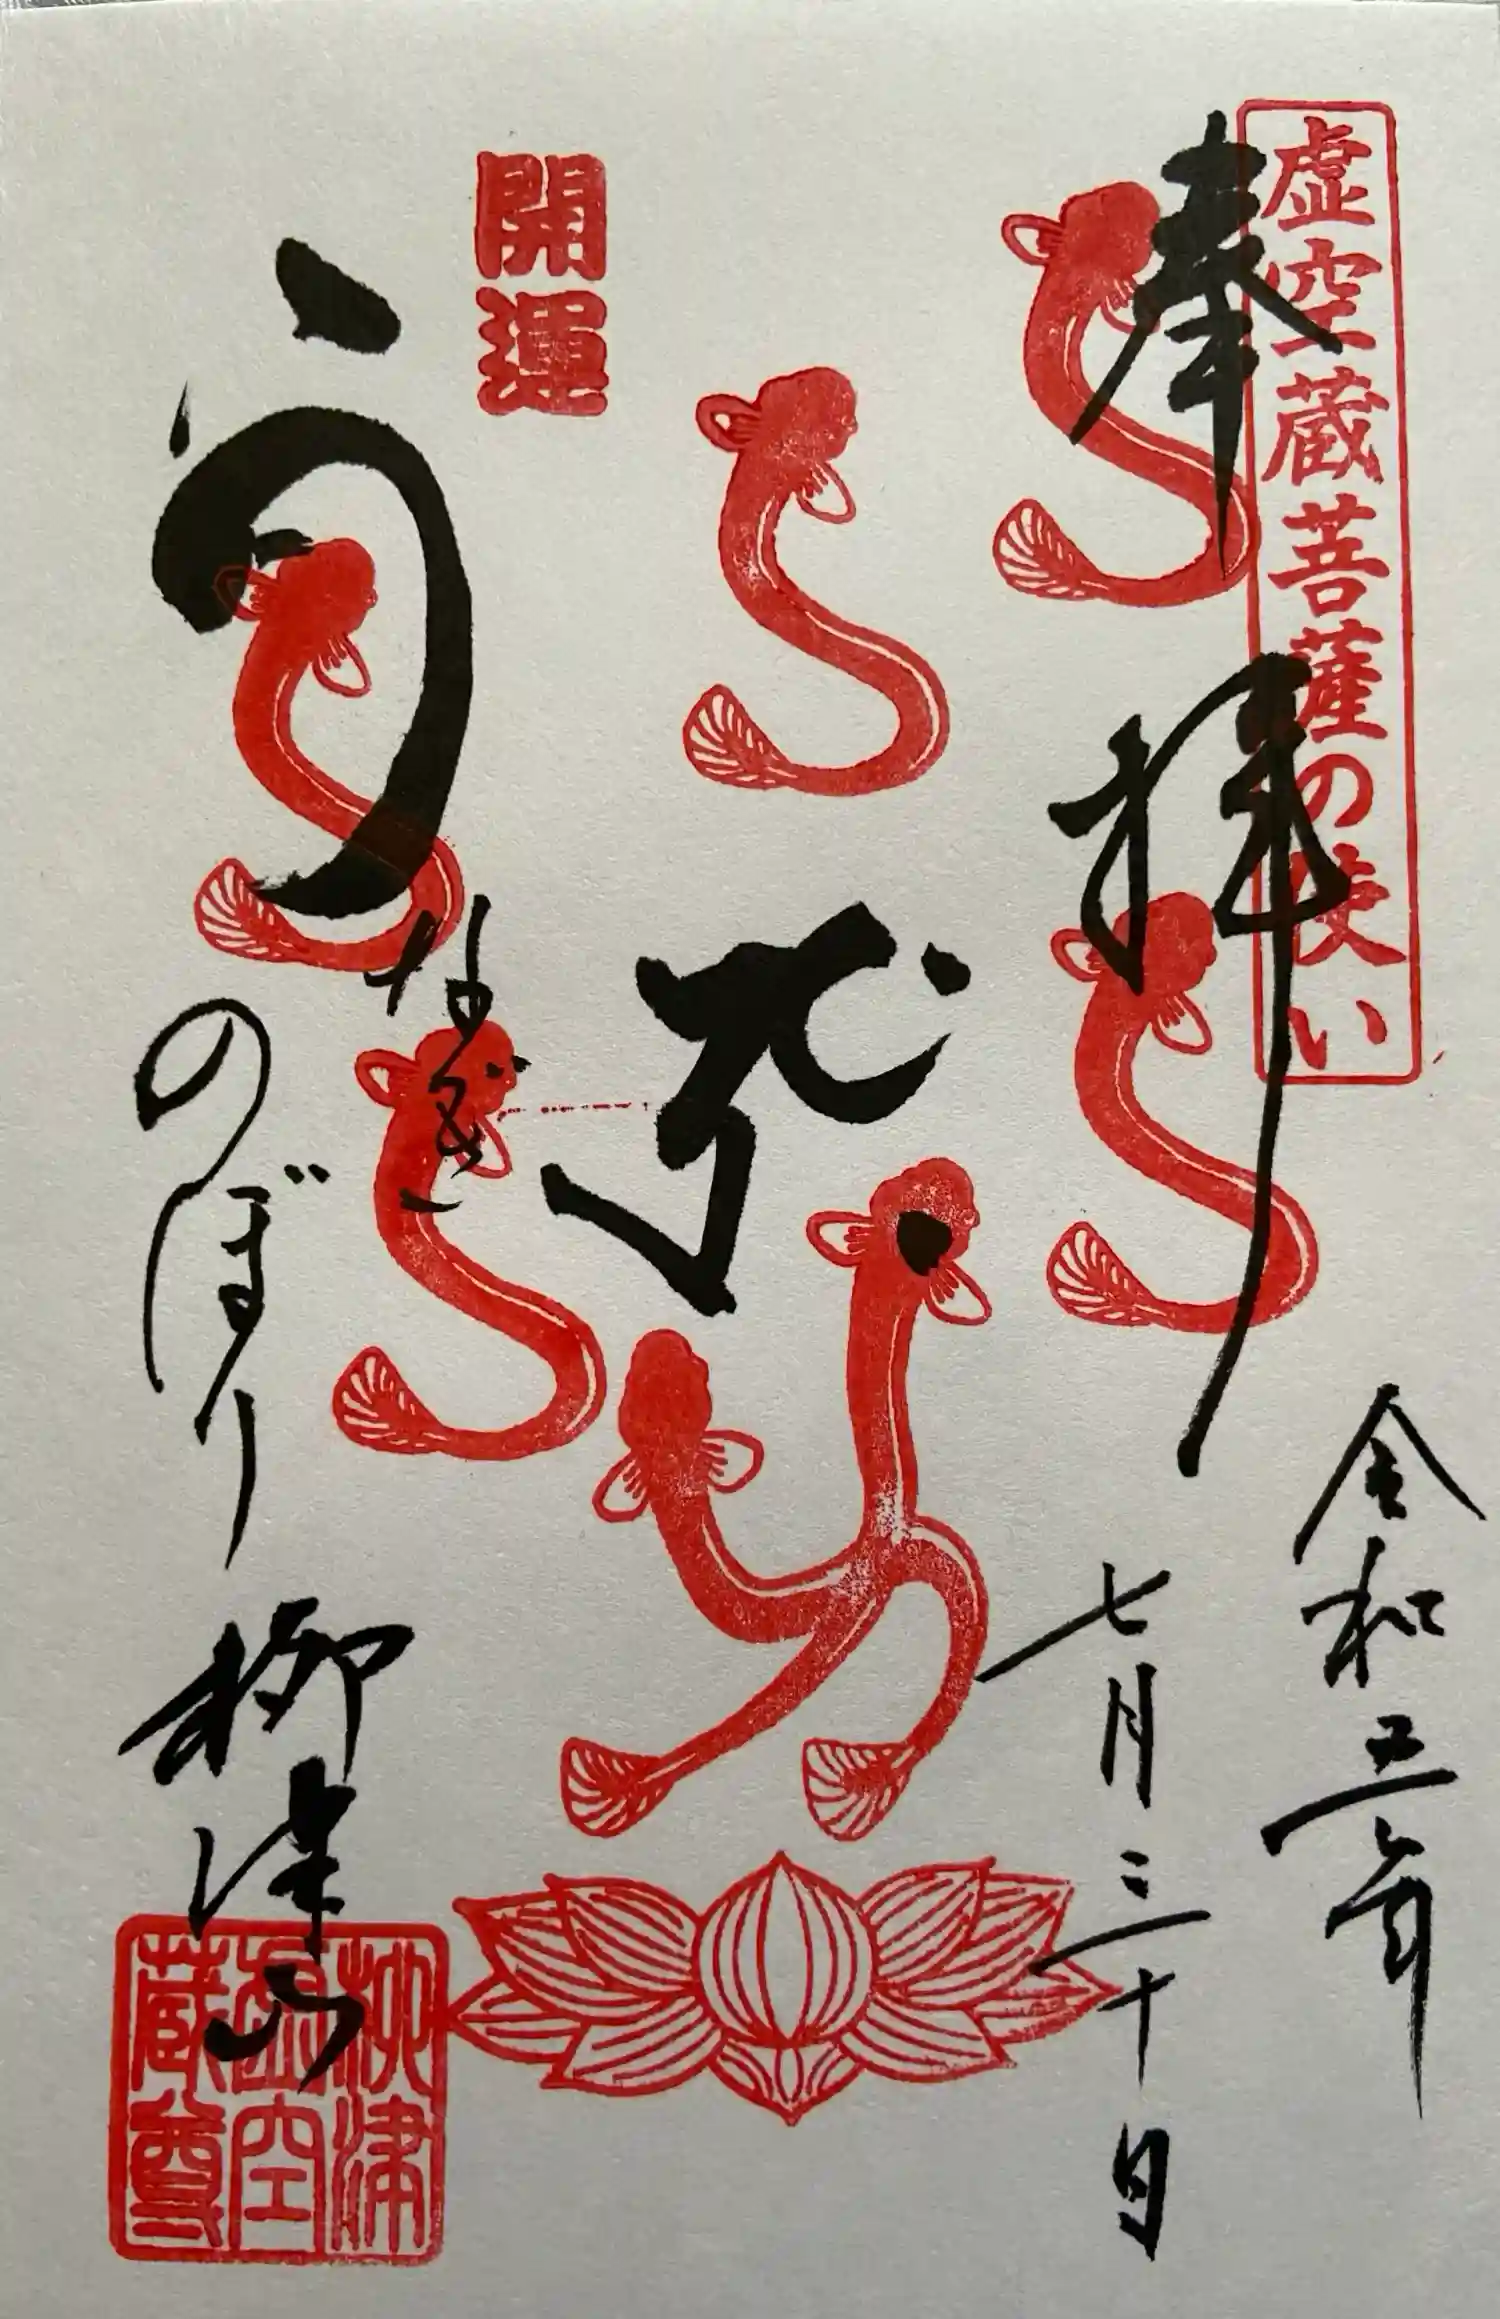 虚空蔵菩薩の使い
奉拝
令和五年
七月三十日
開運
う
なぎ
のぼり
柳津山
柳津
虚空
蔵尊